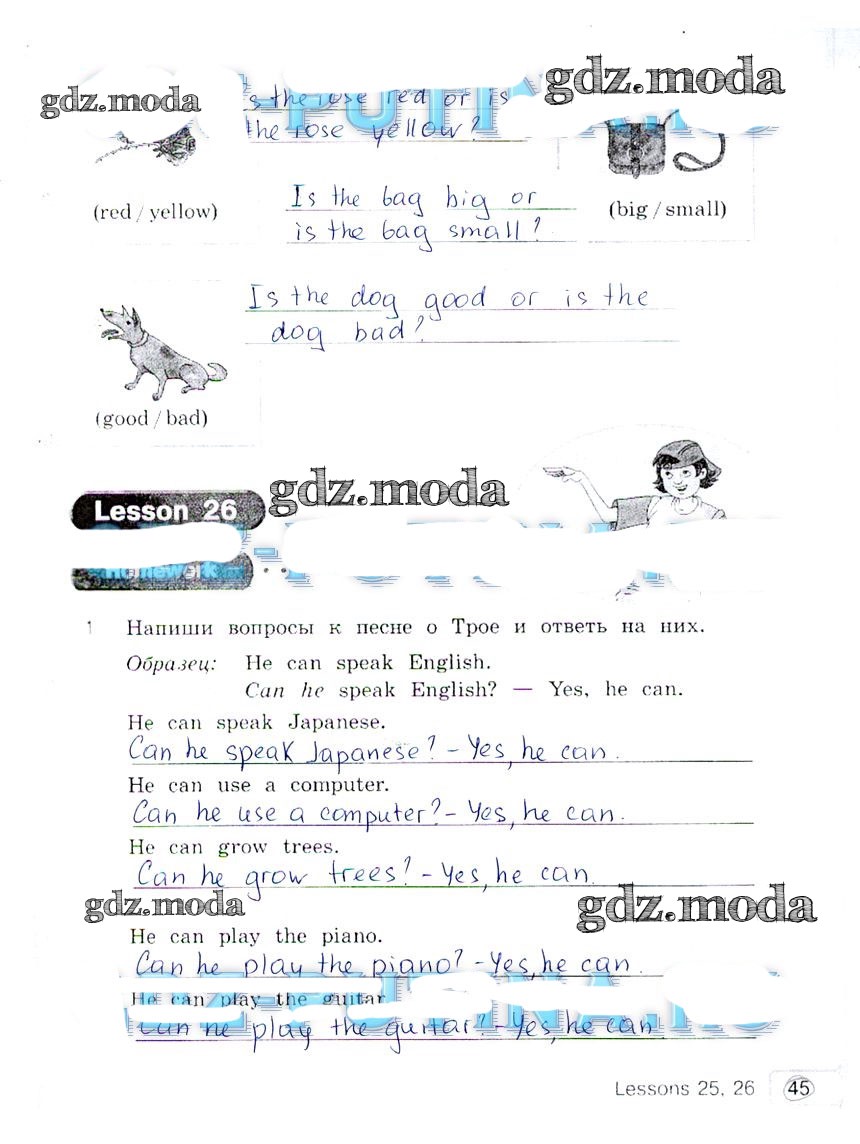 gdz.moda
gdz.moda
the rose red or is
the rose yellow?
(red / yellow)
Is the bag big or
is the bag small?
(big / small)
Is the dog good or is the
dog bad?
(good / bad)
gdz.moda
Lesson 26
Homework
1 Напиши вопросы к песне о Трое и ответь на них.
Образец: He can speak English.
Can he speak English? — Yes, he can.
He can speak Japanese.
Can he speak Japanese? - Yes, he can.
He can use a computer.
Can he use a computer? - Yes, he can.
He can grow trees.
Can he grow trees? - Yes, he can.
gdz.moda
gdz.moda
He can play the piano.
Can he play the piano? - Yes, he can.
He can play the guitar
Can he play the guitar? - Yes, he can
Lessons 25, 26 45